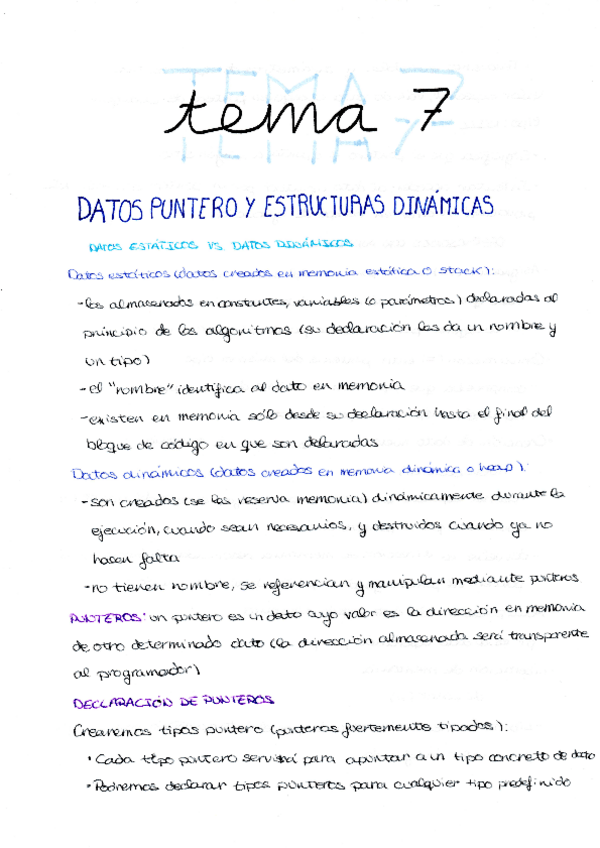 TEMA 7
tema 7
DATOS PUNTERO Y ESTRUCTURAS DINÁMICAS
DATOS ESTÁTICOS VS DATOS DINÁMICOS
Datos estáticos (datos creados en memoria estática o stack):
-los almacenados en constantes, variables (o parámetros) declaradas al
principio de los algoritmos (su declaración les da un nombre y
un tipo)
-el "nombre" identifica al dato en memoria
-existen en memoria sólo desde su declaración hasta el final del
bloque de código en que son declaradas
Datos dinámicos (datos creados en memoria dinámica o heap):
-son creados (se les reserva memoria) dinámicamente durante la
ejecución, cuando sean necesarios, y destruidos cuando ya no
hacen falta
-no tienen nombre, se referencian y manipulan mediante punteros
PUNTEROS: un puntero es un dato cuyo valor es la dirección en memoria
de otro determinado dato (la dirección almacenada será transparente
al programador)
DECLARACIÓN DE PUNTEROS
Crearemos tipos puntero (punteros fuertemente tipados):
• Cada tipo puntero servirá para apuntar a un tipo concreto de dato
• Podremos declarar tipos punteros para cualquier tipo predefinido